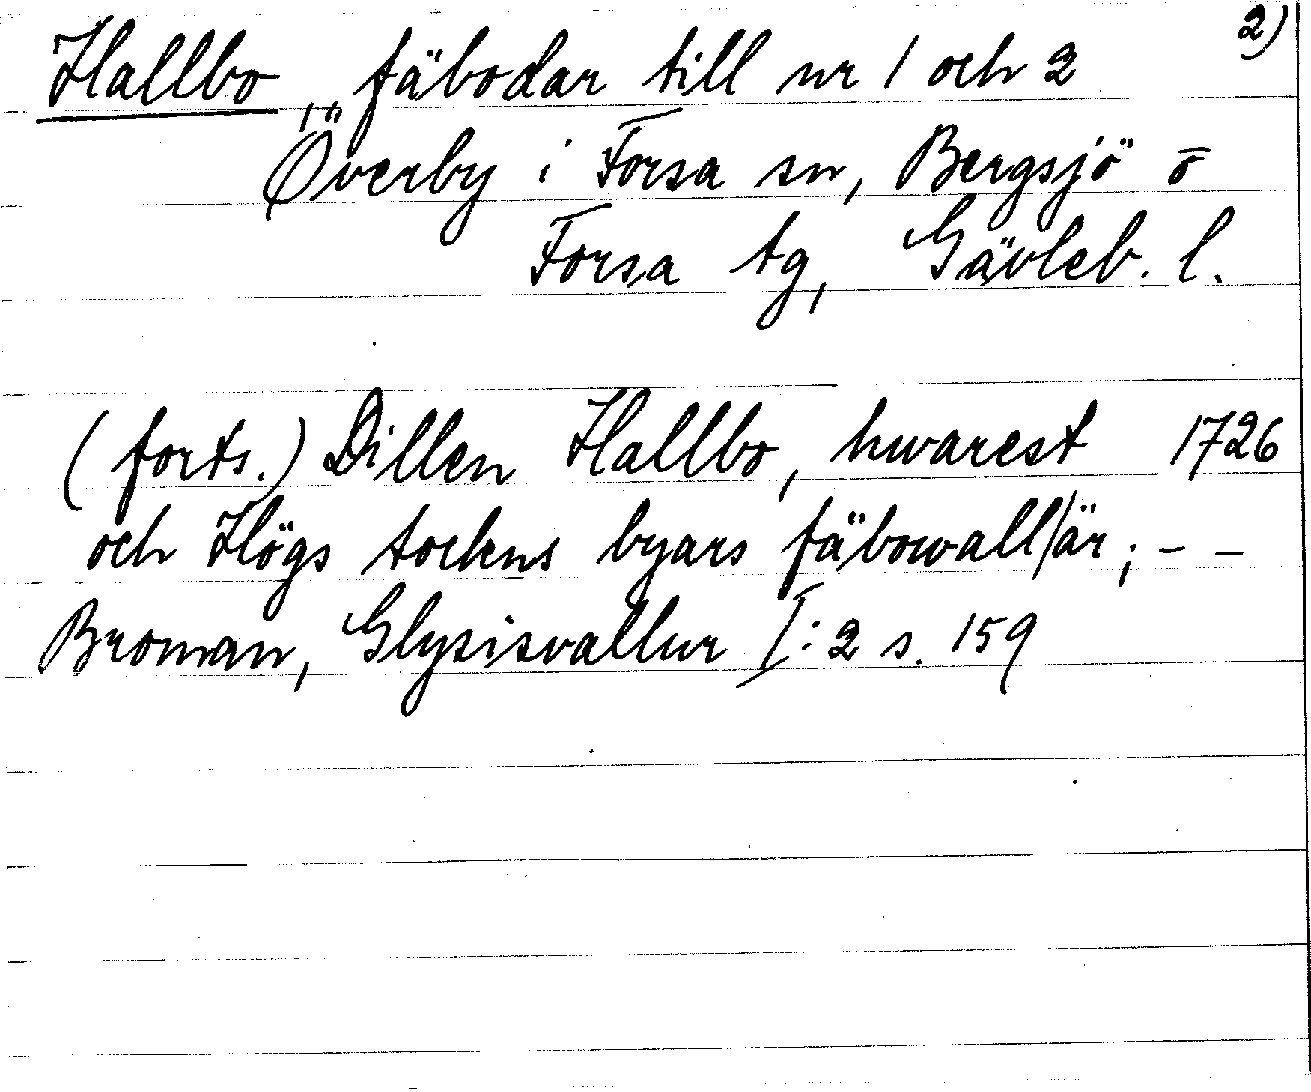 2)
Hallbo, fäbodar till nr 1 och 2
Överby i Forsa sn, Bergsjö o
Forsa tg, Gävleb. l.
(forts.) Dillen Hallbo, hwarest 1726
och Högs sockens byars fäbowall/är; – –
Broman, Glysisvallur I:2 s. 159